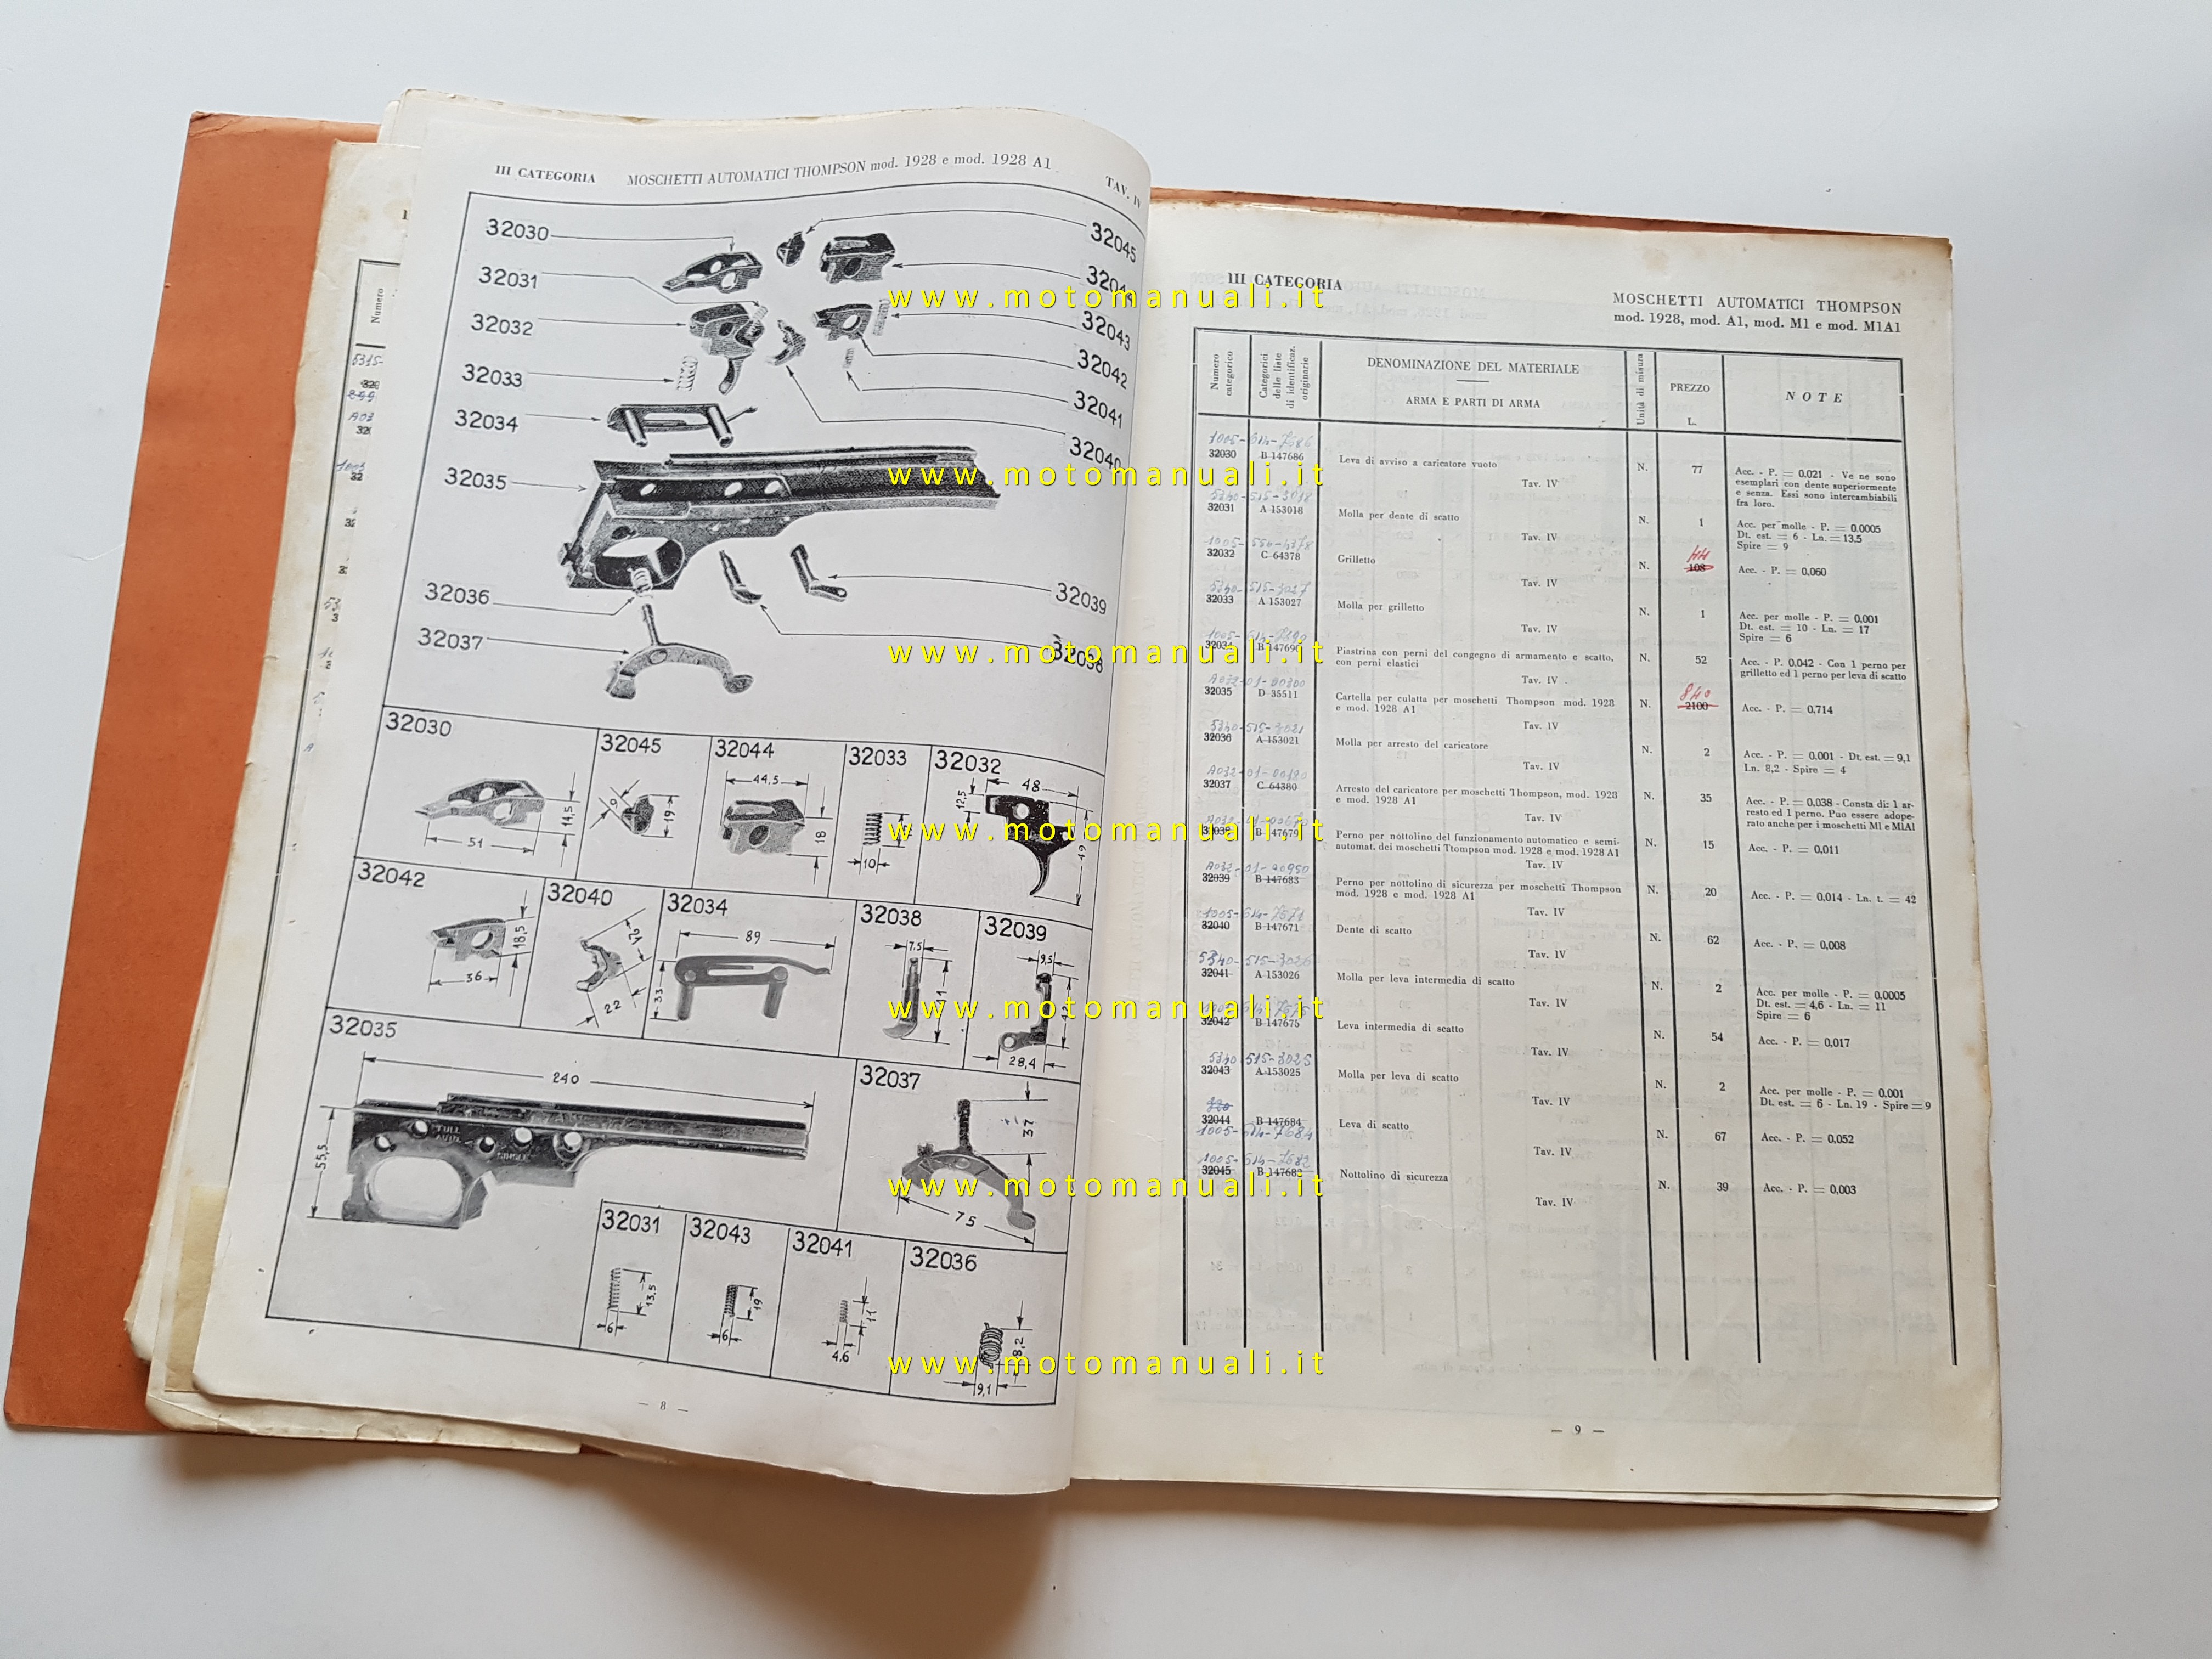 III CATEGORIA MOSCHETTI AUTOMATICI THOMPSON mod. 1928 e mod. 1928 A1 TAV. IV
32030
32031
32032
32033
32034
32035
32036
32037
32045
32043
32042
32041
32040
32039
32038
32030
51
14,5
32045
9
19
32044
44,5
18
32033
10
32032
48
12,5
49
32042
36
18,5
32040
22
32034
89
33
32038
7,5
41
32039
9,5
28,4
32035
240
55,5
FULL
AUTO.
SINGLE
32037
37
75
32031
6
13,5
32043
6
19
32041
4,6
11
32036
9,1
8,2
— 8 —
Numero
III CATEGORIA
MOSCHETTI AUTOMATICI THOMPSON
mod. 1928, mod. A1, mod. M1 e mod. M1A1
Numero categorico
Categorici delle liste di identificaz. originarie
DENOMINAZIONE DEL MATERIALE
ARMA E PARTI DI ARMA
Unità di misura
PREZZO
L.
NOTE
1005-614-7686
32030 B 147686 Leva di avviso a caricatore vuoto N. 77 Acc. - P. = 0.021 - Ve ne sono
Tav. IV esemplari con dente superiormente
e senza. Essi sono intercambiabili
fra loro.
5340-515-3018
32031 A 153018 Molla per dente di scatto N. 1 Acc. per molle - P. = 0.0005
Tav. IV Dt. est. = 6 - Ln. = 13.5
Spire = 9
32032 C 64378 Grilletto N. 108 44 Acc. - P. = 0,060
Tav. IV
5340-515-3027
32033 A 153027 Molla per grilletto N. 1 Acc. per molle - P. = 0,001
Tav. IV Dt. est. = 10 - Ln. = 17
Spire = 6
32034 B 147690 Piastrina con perni del congegno di armamento e scatto, N. 52 Acc. - P. 0.042 - Con 1 perno per
con perni elastici grilletto ed 1 perno per leva di scatto
Tav. IV
A032-01-00300
32035 D 35511 Cartella per culatta per moschetti Thompson mod. 1928 N. 2100 840 Acc. - P. = 0,714
e mod. 1928 A1
Tav. IV
5340-515-3021
32036 A 153021 Molla per arresto del caricatore N. 2 Acc. - P. = 0.001 - Dt. est. = 9,1
Tav. IV Ln. 8,2 - Spire = 4
32037 C 64380 Arresto del caricatore per moschetti Thompson, mod. 1928 N. 35 Acc. - P. = 0,038 - Consta di: 1 ar-
e mod. 1928 A1 resto ed 1 perno. Può essere adope-
Tav. IV rato anche per i moschetti M1 e M1A1
32038 B 147679 Perno per nottolino del funzionamento automatico e semi- N. 15 Acc. - P. = 0,011
automat. dei moschetti Ttompson mod. 1928 e mod. 1928 A1
Tav. IV
A032-01-00950
32039 B 147683 Perno per nottolino di sicurezza per moschetti Thompson N. 20 Acc. - P. = 0,014 - Ln. t. = 42
mod. 1928 e mod. 1928 A1
Tav. IV
1005-614-7671
32040 B 147671 Dente di scatto N. 62 Acc. - P. = 0,008
Tav. IV
5340-515-3026
32041 A 153026 Molla per leva intermedia di scatto N. 2 Acc. per molle - P. = 0.0005
Tav. IV Dt. est. = 4,6 - Ln. = 11
Spire = 6
32042 B 147675 Leva intermedia di scatto N. 54 Acc. - P. = 0,017
Tav. IV
5340-515-3025
32043 A 153025 Molla per leva di scatto N. 2 Acc. per molle - P. = 0.001
Tav. IV Dt. est. = 6 - Ln. 19 - Spire = 9
32044 B 147684 Leva di scatto N. 67 Acc. - P. = 0.052
1005-614-7684
Tav. IV
1005-614-7682
32045 B 147683 Nottolino di sicurezza N. 39 Acc. - P. = 0,003
Tav. IV
— 9 —
www.motomanuali.it
www.motomanuali.it
www.motomanuali.it
www.motomanuali.it
www.motomanuali.it
www.motomanuali.it
www.motomanuali.it